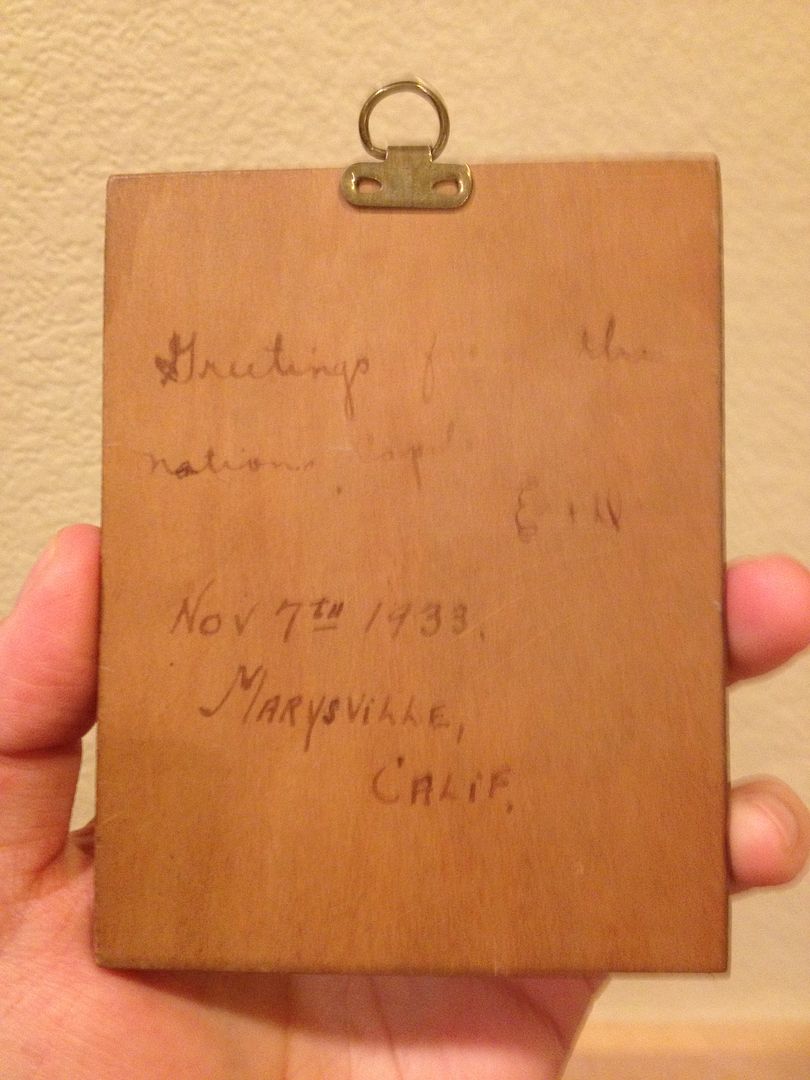 Greetings from the
nations Capi
Nov 7TH 1933.
MARYSVILLE,
CALIF.